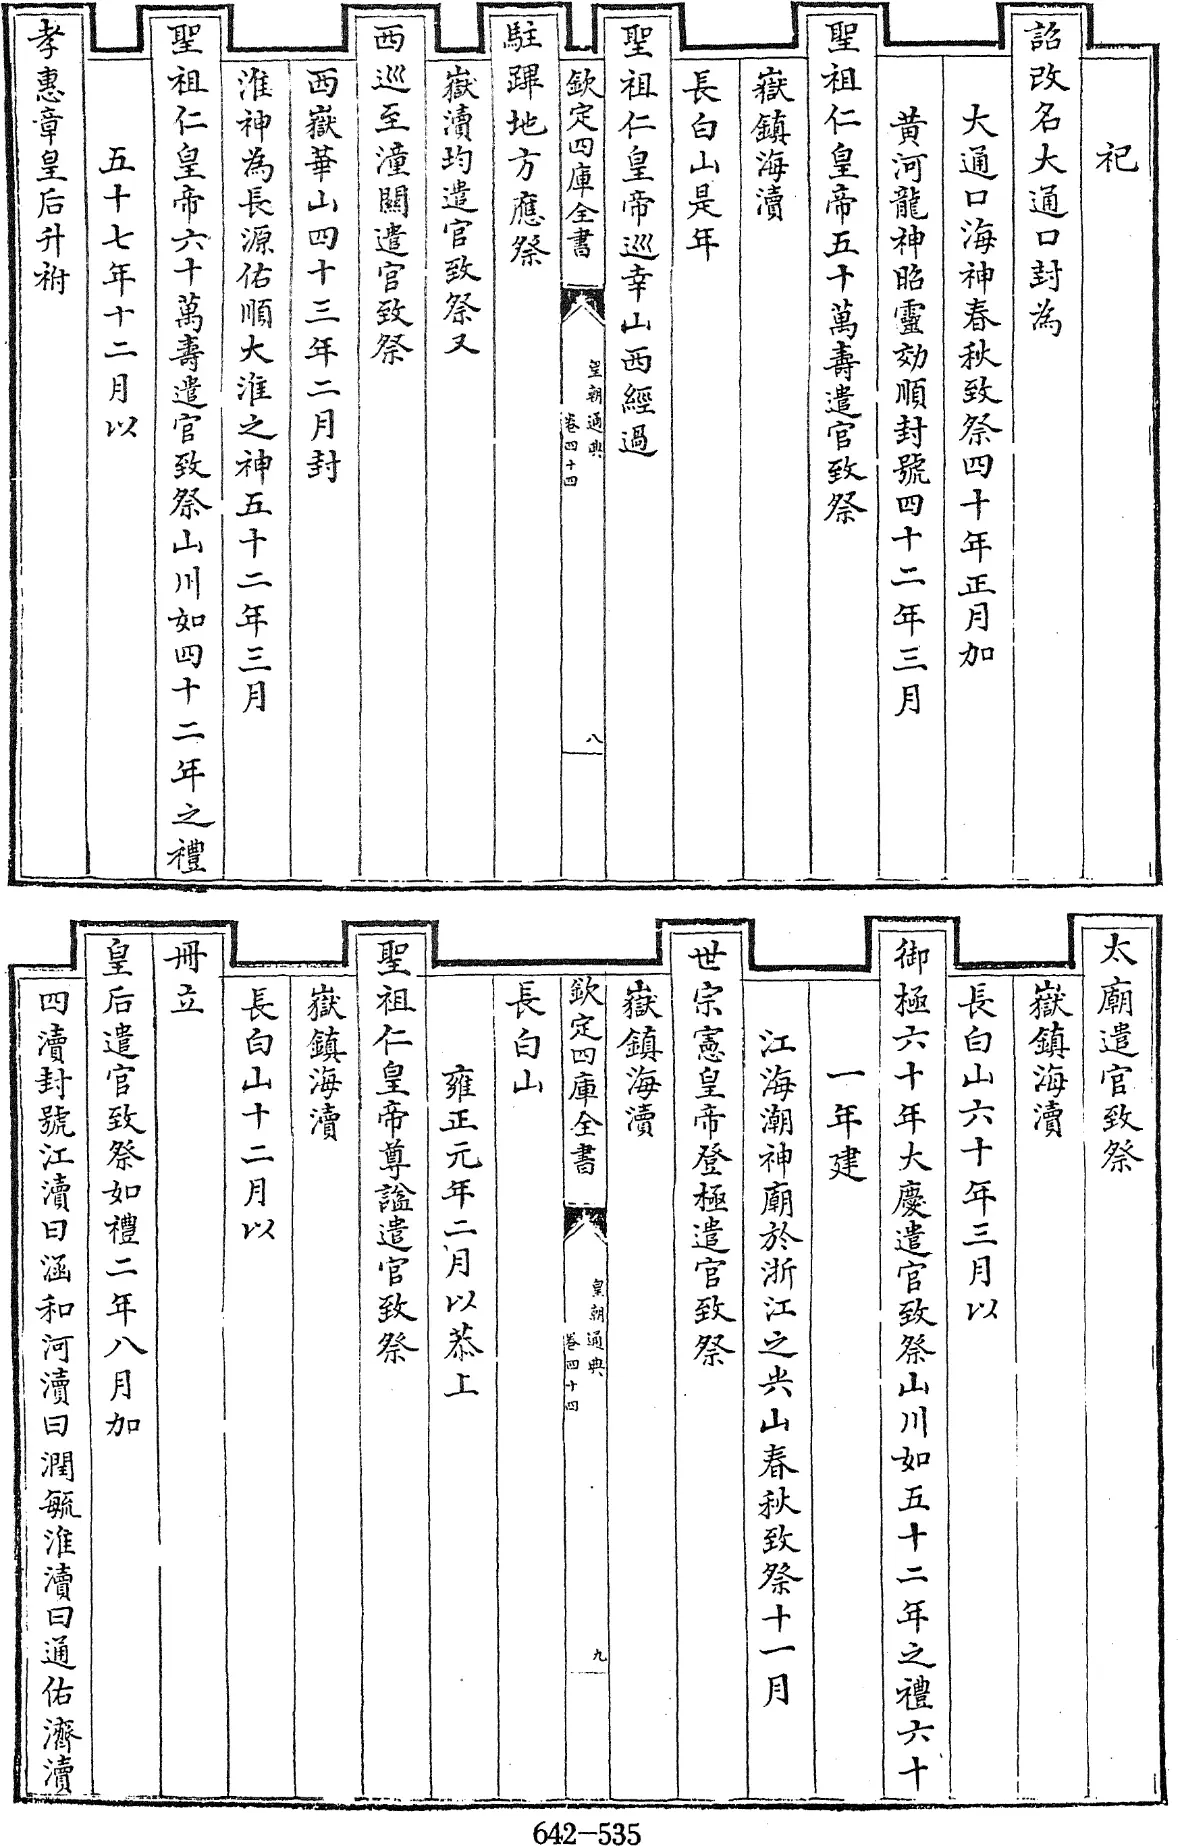 祀
詔改名大通口封為
大通口海神春秋致祭四十年正月加
黄河龍神昭靈効順封號四十二年三月
聖祖仁皇帝五十萬壽遣官致祭
嶽鎮海瀆
長白山是年
聖祖仁皇帝巡幸山西經過
欽定四庫全書
皇朝通典
卷四十四
八
駐蹕地方應祭
嶽瀆均遣官致祭又
西巡至潼關遣官致祭
西嶽華山四十三年二月封
淮神為長源佑順大淮之神五十二年三月
聖祖仁皇帝六十萬壽遣官致祭山川如四十二年之禮
五十七年十二月以
孝惠章皇后升祔
太廟遣官致祭
嶽鎮海瀆
長白山六十年三月以
御極六十年大慶遣官致祭山川如五十二年之禮六十
一年建
江海潮神廟於浙江之尖山春秋致祭十一月
世宗憲皇帝登極遣官致祭
嶽鎮海瀆
欽定四庫全書
皇朝通典
卷四十四
九
長白山
雍正元年二月以恭上
聖祖仁皇帝尊諡遣官致祭
嶽鎮海瀆
長白山十二月以
冊立
皇后遣官致祭如禮二年八月加
四瀆封號江瀆曰涵和河瀆曰潤毓淮瀆曰通佑濟瀆
642-535